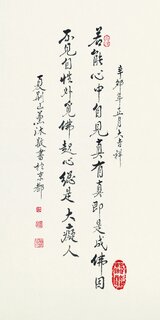 辛卯年正月大吉祥
若能心中自見真有真即是成佛因
不見自性外覓佛起心總是大癡人
夏荊山薰沐敬書於京都